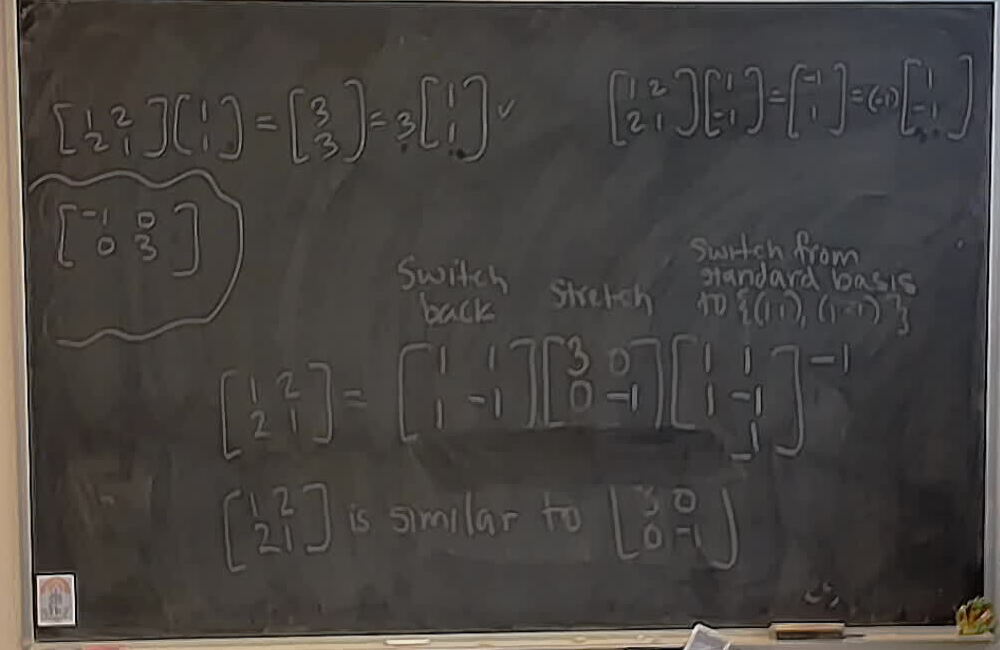 [1 2; 2 1][1; 1] = [3; 3] = 3[1; 1] ✓
[1 2; 2 1][1; -1] = [-1; 1] = (-1)[1; -1]
[-1 0; 0 3]
Switch
back
Stretch
Switch from
standard basis
to {(1 1), (1 -1)}
[1 2; 2 1] = [1 1; 1 -1][3 0; 0 -1][1 1; 1 -1]⁻¹
[1 2; 2 1] is similar to [3 0; 0 -1]